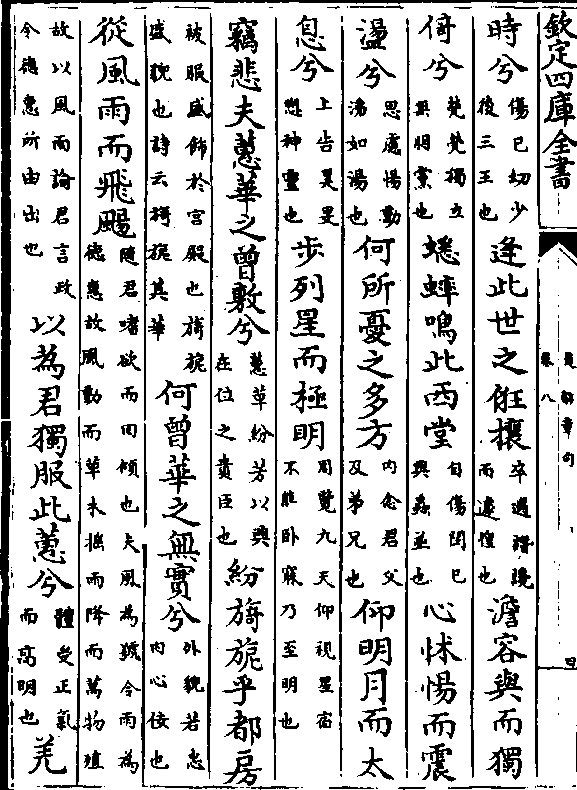 欽定四庫全書
楚辭章句
卷八
四
時兮傷已幼少後三王也逢此世之俇攘卒遇譖讒而遽惶也澹容與而獨
倚兮煢煢獨立無朋黨也蟋蟀鳴此西堂自傷閔已與蟲並也心怵惕而震
盪兮思慮惕動沸如湯也何所憂之多方內念君父及弟兄也仰明月而太
息兮上告昊旻愬神靈也步列星而極明周覽九天仰視星宿不能卧寐乃至明也
竊悲夫蕙華之曾敷兮蕙草紛芳以興在位之貴臣也紛旖旎乎都房
被服盛飾於宮殿也旖旎盛貌也詩云旖旎其華何曾華之無實兮外貌若忠內心佞也
從風雨而飛颺隨君嗜欲而回傾也夫風為號令雨為德惠故風動而草木搖雨降而萬物殖
故以風雨諭君言政令德惠所由出也以為君獨服此蕙兮體受正氣而高明也羌